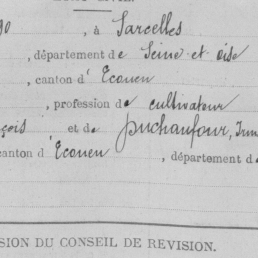 90, à Sarcelles
, département de Seine et oise
, canton d'Ecouen
, profession de cultivateur
çois, et de puchaufour, Irm
canton d'Ecouen, département d
SION DU CONSEIL DE REVISION.